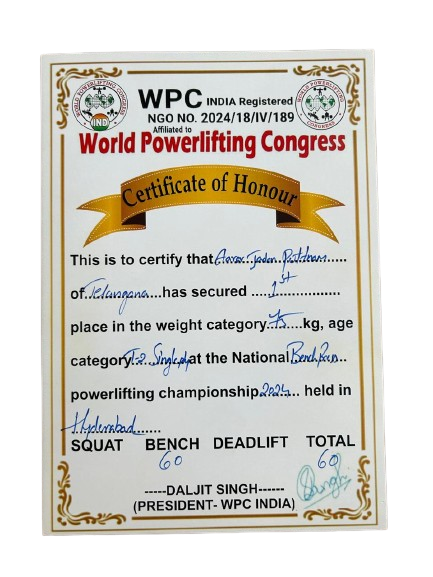 WPC INDIA Registered
NGO NO. 2024/18/IV/189
Affiliated to
World Powerlifting Congress
WORLD POWERLIFTING CONGRESS
IND
WORLD POWERLIFTING CONGRESS
Certificate of Honour
This is to certify that
of Telangana has secured 1st
place in the weight category 75 kg, age
category at the National Bench Press
powerlifting championship 2024 held in
Hyderabad
SQUAT BENCH DEADLIFT TOTAL
60 60
-----DALJIT SINGH------
(PRESIDENT- WPC INDIA)